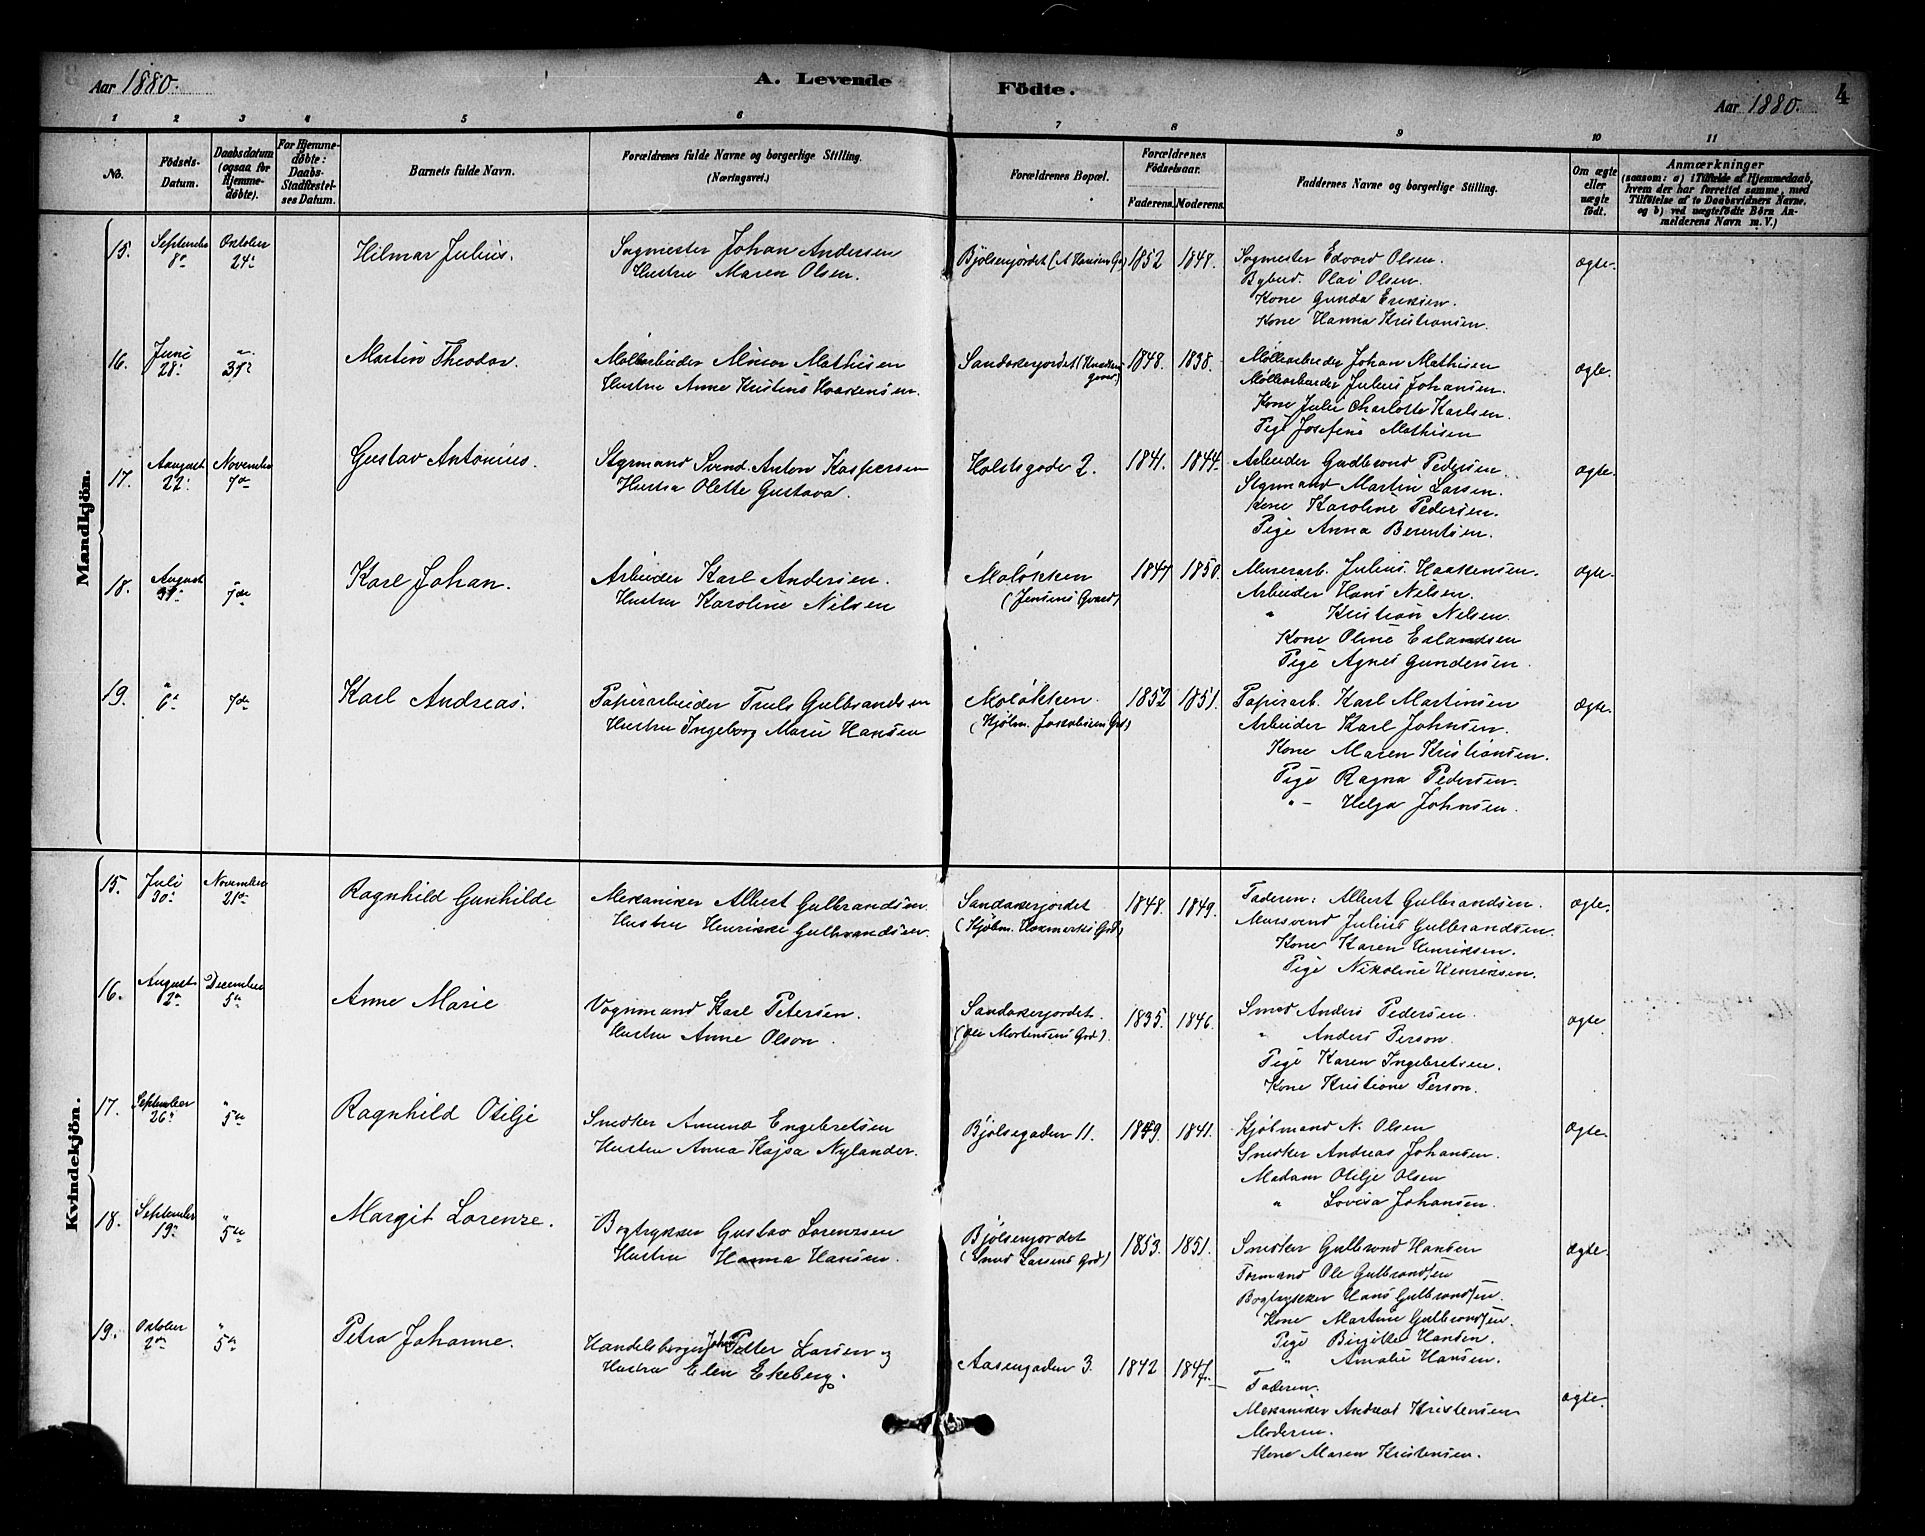 Aar 1880.
A. Levende Födte.
Aar 1880.
4
1 2 3 4 5 6 7 8 9 10 11
No.
Födsels-Datum.
Daabsdatum (ogsaa for Hjemmedøbte).
For Hjemmedøbte: Daabs-Stadfæstelses Datum.
Barnets fulde Navn.
Forældrenes fulde Navne og borgerlige Stilling.
(Næringsvei.)
Forældrenes Bopæl.
Forældrenes Födselsaar.
Faderens. Moderens.
Faddernes Navne og borgerlige Stilling.
Om ægte eller uægte födt.
Anmærkninger
(saasom: a) i Tilfælde af Hjemmedaab,
hvem der har forrettet samme, med
Tilföielse af to Daabsvidners Navne.
og b) ved uægtefödte Börn Anmelderens Navn m. V.)
Mandkjön.
15. September 8de Oktober 24de Hilmar Julius.
Sagmester Johan Andersen
Hustru Maren Olsen.
Bjølsenjordet (A Hansens Gd) 1852 1848.
Sagmester Edvard Olsen.
Bybud. Olai Olsen.
Kone Gunda Eriksen.
Kone Hanna Kristiansen.
Ægte.
16. Juni 28de " 31te Martin Theodor.
Møllearbeider Mathisen
Hustru Anne Kristine Haakensen.
Sandakerjordet 1848. 1838.
Møllearbeider Johan Mathisen
Møllearbeider Julius Johansen.
Kone Julie Charlotte Karlsen.
Pige Josefine Mathisen
Ægte.
17. August 22de November 7de Gustav Antonius.
Styrmand Svend Anton Kaspersen
Hustru Olette Gustava.
Holstsgade 2. 1841. 1844.
Arbeider Gudbrand Pedersen
Styrmand Martin Larsen.
Kone Karoline Pedersen.
Pige Anna Berentsen.
Ægte.
18. August 7de Karl Johan.
Arbeider Karl Andersen.
Hustru Karoline Nilsen
Moløkken
(Jensens Gaard)
1844 1850.
Murerarb. Julius Haakensen.
Arbeider Hans Nilsen.
" Kristian Nilsen.
Kone Oline Erlandsen
Pige Agnes Gundersen
Ægte.
19. " 6te 7de Karl Andreas.
Papirarbeider Truls Gulbrandsen
Hustru Ingeborg Marie Hansen
Moløkken.
(Kjøbm. Jakobsens Gd)
1852 1851.
Papirarb. Karl Martinsen
Arbeider Karl Johnsen.
Kone Maren Kristiansen.
Pige Ragna Pedersen.
" Helga Johnsen.
Ægte.
Kvindekjön.
15. Juli 30te November 21de Ragnhild Gunhilde
Mekaniker Albert Gulbrandsen
Hustru Henrikke Gulbrandsen.
Sandakerjordet
1848. 1849.
Faderen: Albert Gulbrandsen.
Mursvend Julius Gulbrandsen.
Kone Karen Henriksen.
Pige Nikoline Henriksen.
Ægte.
16. August 12te December 5te Anne Marie
Vognmand Karl Petersen.
Hustru Anne Olson.
Sandakerjordet.
(Ole Mortensens Gd).
1835. 1846.
Smed Anders Pedersen.
" Anders Person.
Pige Karen Ingebretsen.
Kone Kristiane Person.
Ægte
17. September 26de " 5te Ragnhild Otilje
Snedker Amund Engebretsen
Hustru Anna Kajsa Nylander.
Bjølsegaden 11. 1849. 1841.
Kjøbmand N. Olsen
Snedker Andreas Johansen.
Madam Otilje Olsen
" Lovisa Johansen.
Ægte.
18. September 19de " 5te Margit Lorenze.
Bogtrykker Gustav Lorenzsen
Hustru Hanna Hansen.
Bjølsenjordet
(Smed Larsens Gd)
1853. 1851.
Snedker Gulbrand Hansen
Formand Ole Gulbrandsen
Bogtrykker Hans Gulbrandsen.
Kone Martine Gulbrandsen.
Pige Birgitte Hansen.
" Amalie Hansen.
Ægte.
19. Oktober 2den " 5te Petra Johanne.
Handelsborger Johan Petter Larsen og
Hustru Elen Ekeberg.
Aasengaden 3. 1842 1841
Faderen.
Mekaniker Andreas Kristensen
Moderen.
Kone Maren Kristensen.
Ægte.